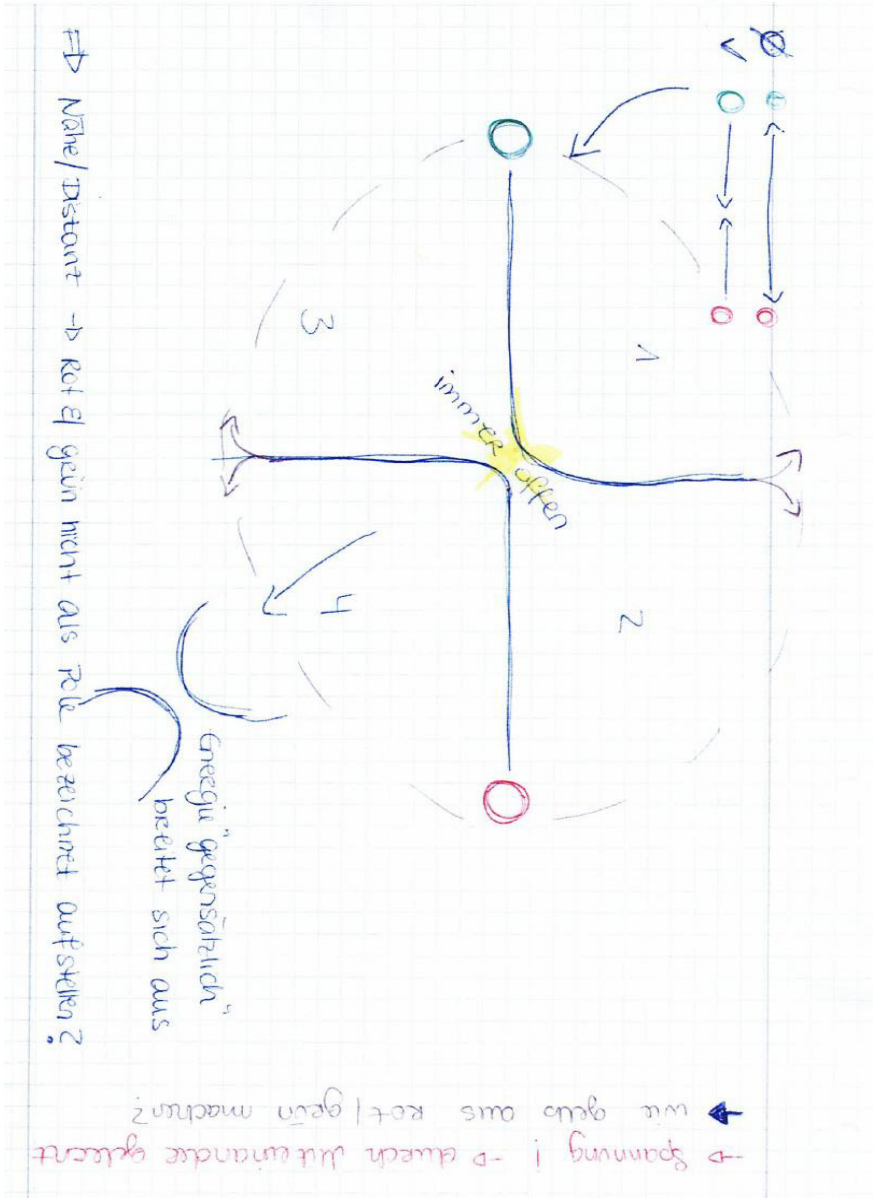 Ø
1
2
immer offen
3
4
Energie „gegensätzlich"
breitet sich aus
⇒ Nähe/Distanz → Rot &/ grün nicht als Pole bezeichnet aufstellen?
→ Spannung! → durch Miteinander gelernt
wie gelb aus Rot/grün machen?